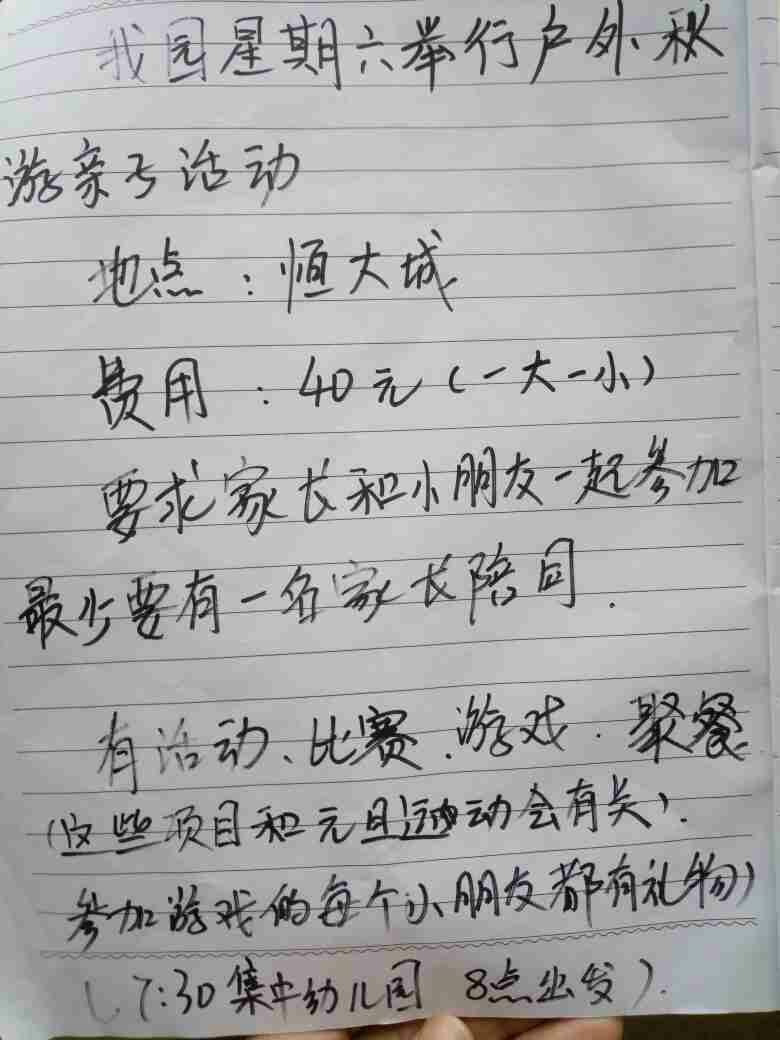 我园星期六举行户外秋
游亲子活动
地点：恒大城
费用：40元(一大一小)
要求家长和小朋友一起参加
最少要有一名家长陪同.
有活动、比赛.游戏.聚餐.
(这些项目和元旦运动会有关).
参加游戏的每个小朋友都有礼物)
(7:30集中幼儿园 8点出发).